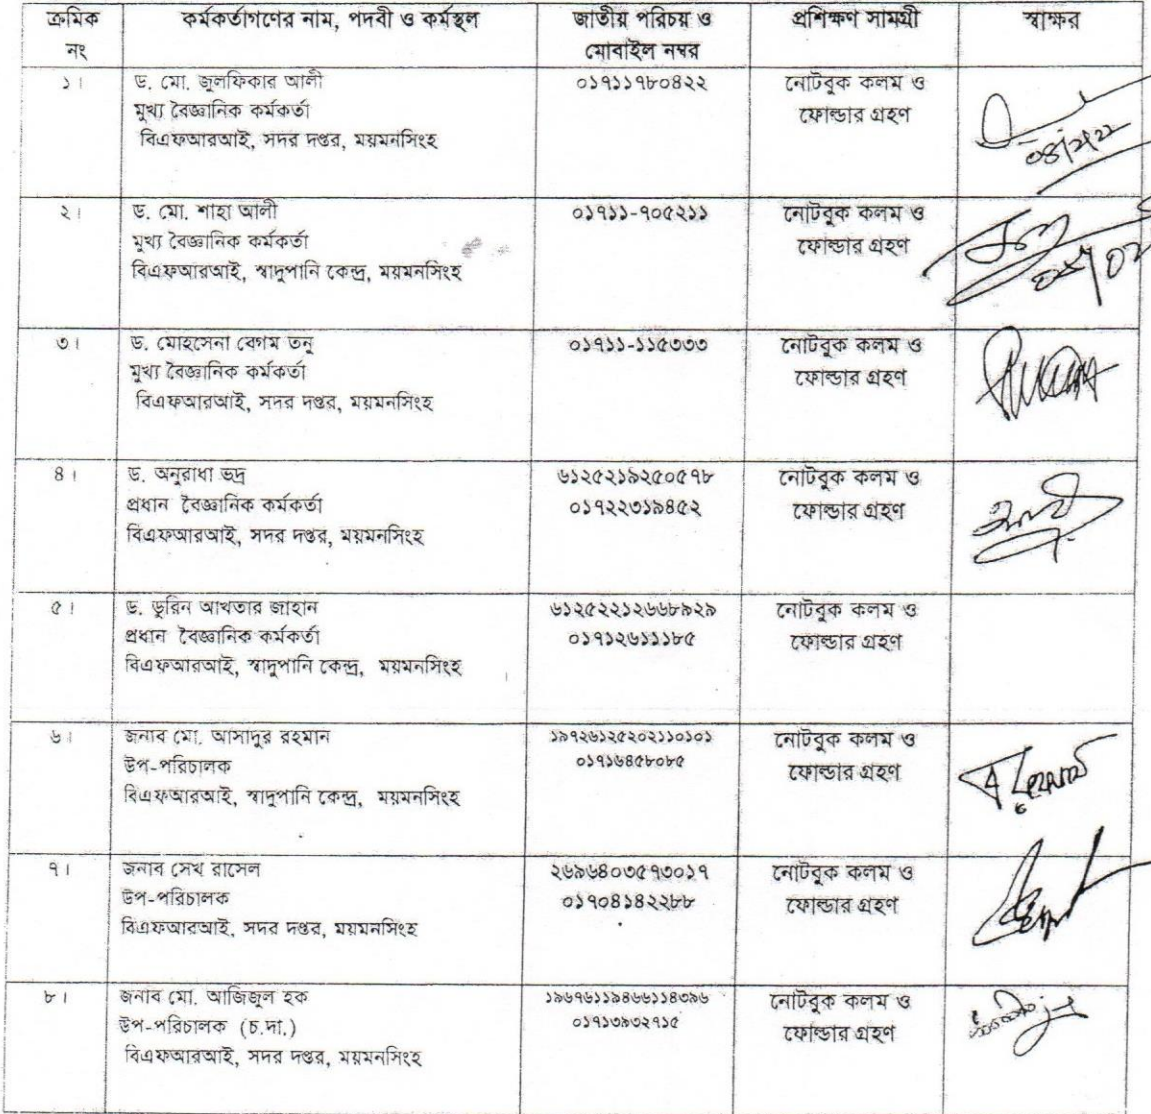 ক্রমিক নং
কর্মকর্তাগণের নাম, পদবী ও কর্মস্থল
জাতীয় পরিচয় ও
মোবাইল নম্বর
প্রশিক্ষণ সামগ্রী
স্বাক্ষর
১।
ড. মো. জুলফিকার আলী
মুখ্য বৈজ্ঞানিক কর্মকর্তা
বিএফআরআই, সদর দপ্তর, ময়মনসিংহ
০১৭১১৭৮০৪২২
নোটবুক কলম ও
ফোল্ডার গ্রহণ
২।
ড. মো. শাহা আলী
মুখ্য বৈজ্ঞানিক কর্মকর্তা
বিএফআরআই, স্বাদুপানি কেন্দ্র, ময়মনসিংহ
০১৭১১-৭০৫২১১
নোটবুক কলম ও
ফোল্ডার গ্রহণ
৩।
ড. মোহসেনা বেগম তনু
মুখ্য বৈজ্ঞানিক কর্মকর্তা
বিএফআরআই, সদর দপ্তর, ময়মনসিংহ
০১৭১১-১১৫৩৩৩
নোটবুক কলম ও
ফোল্ডার গ্রহণ
৪।
ড. অনুরাধা ভদ্র
প্রধান বৈজ্ঞানিক কর্মকর্তা
বিএফআরআই, সদর দপ্তর, ময়মনসিংহ
৬১২৫২১৯২৫০৫৭৮
০১৭২২৩১৯৪৫২
নোটবুক কলম ও
ফোল্ডার গ্রহণ
৫।
ড. ডুরিন আখতার জাহান
প্রধান বৈজ্ঞানিক কর্মকর্তা
বিএফআরআই, স্বাদুপানি কেন্দ্র, ময়মনসিংহ
৬১২৫২২১২৬৬৮৯২৯
০১৭১২৬১১১৮৫
নোটবুক কলম ও
ফোল্ডার গ্রহণ
৬।
জনাব মো. আসাদুর রহমান
উপ-পরিচালক
বিএফআরআই, স্বাদুপানি কেন্দ্র, ময়মনসিংহ
১৯৭২৬১২৫২০২১১০১০১
০১৭১৬৪৫৮০৮৫
নোটবুক কলম ও
ফোল্ডার গ্রহণ
৭।
জনাব সেখ রাসেল
উপ-পরিচালক
বিএফআরআই, সদর দপ্তর, ময়মনসিংহ
২৬৯৬৪০৩৫৭৩০১৭
০১৭০৪১৪২২৮৮
নোটবুক কলম ও
ফোল্ডার গ্রহণ
৮।
জনাব মো. আজিজুল হক
উপ-পরিচালক (চ.দা.)
বিএফআরআই, সদর দপ্তর, ময়মনসিংহ
১৯৬৭৬১১৯৪৬৬১১৪৩৯৬
০১৭১৩৯৩২৭১৫
নোটবুক কলম ও
ফোল্ডার গ্রহণ